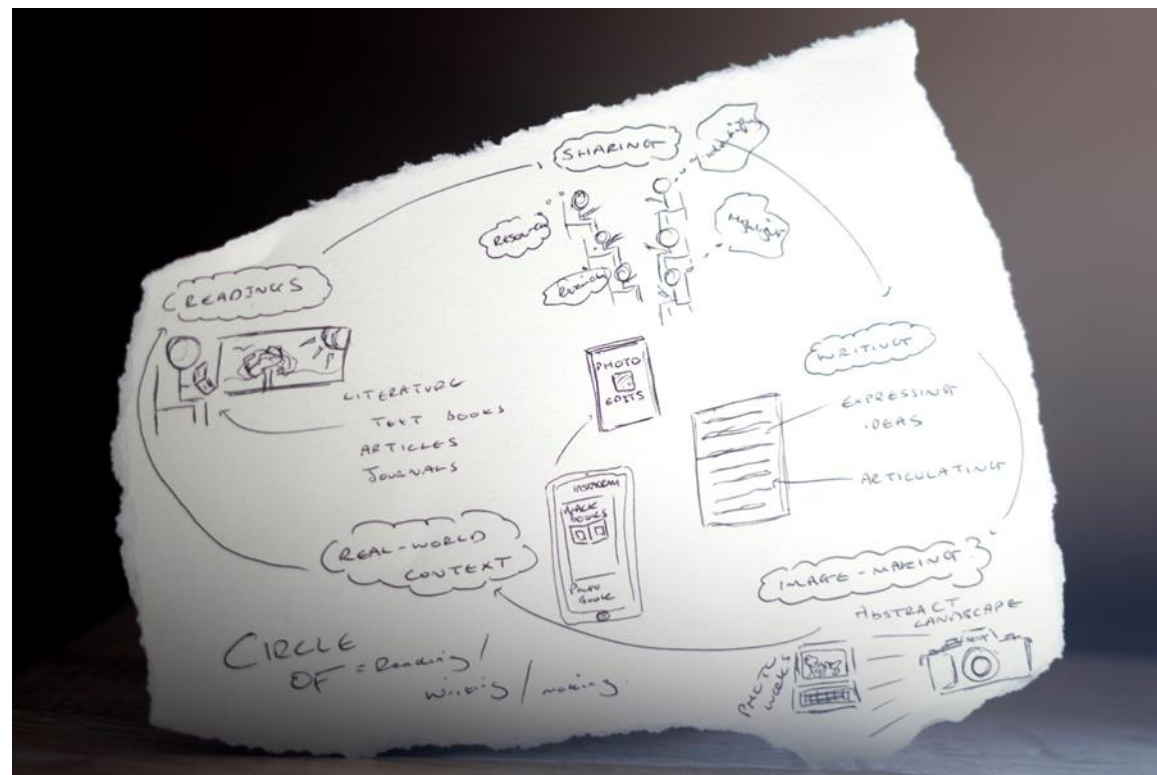 SHARING
RESEARCH
Highlight
READINGS
LITERATURE
TEXT BOOKS
ARTICLES
JOURNALS
PHOTO
EDITS
WRITING
EXPRESSING
IDEAS
ARTICULATING
INSTAGRAM
BOOKS
PHOTO
BOOK
REAL-WORLD
CONTEXT
IMAGE-MAKING
ABSTRACT
LANDSCAPE
PHOTO
WORKS
CIRCLE
OF = Reading/
writing/making.